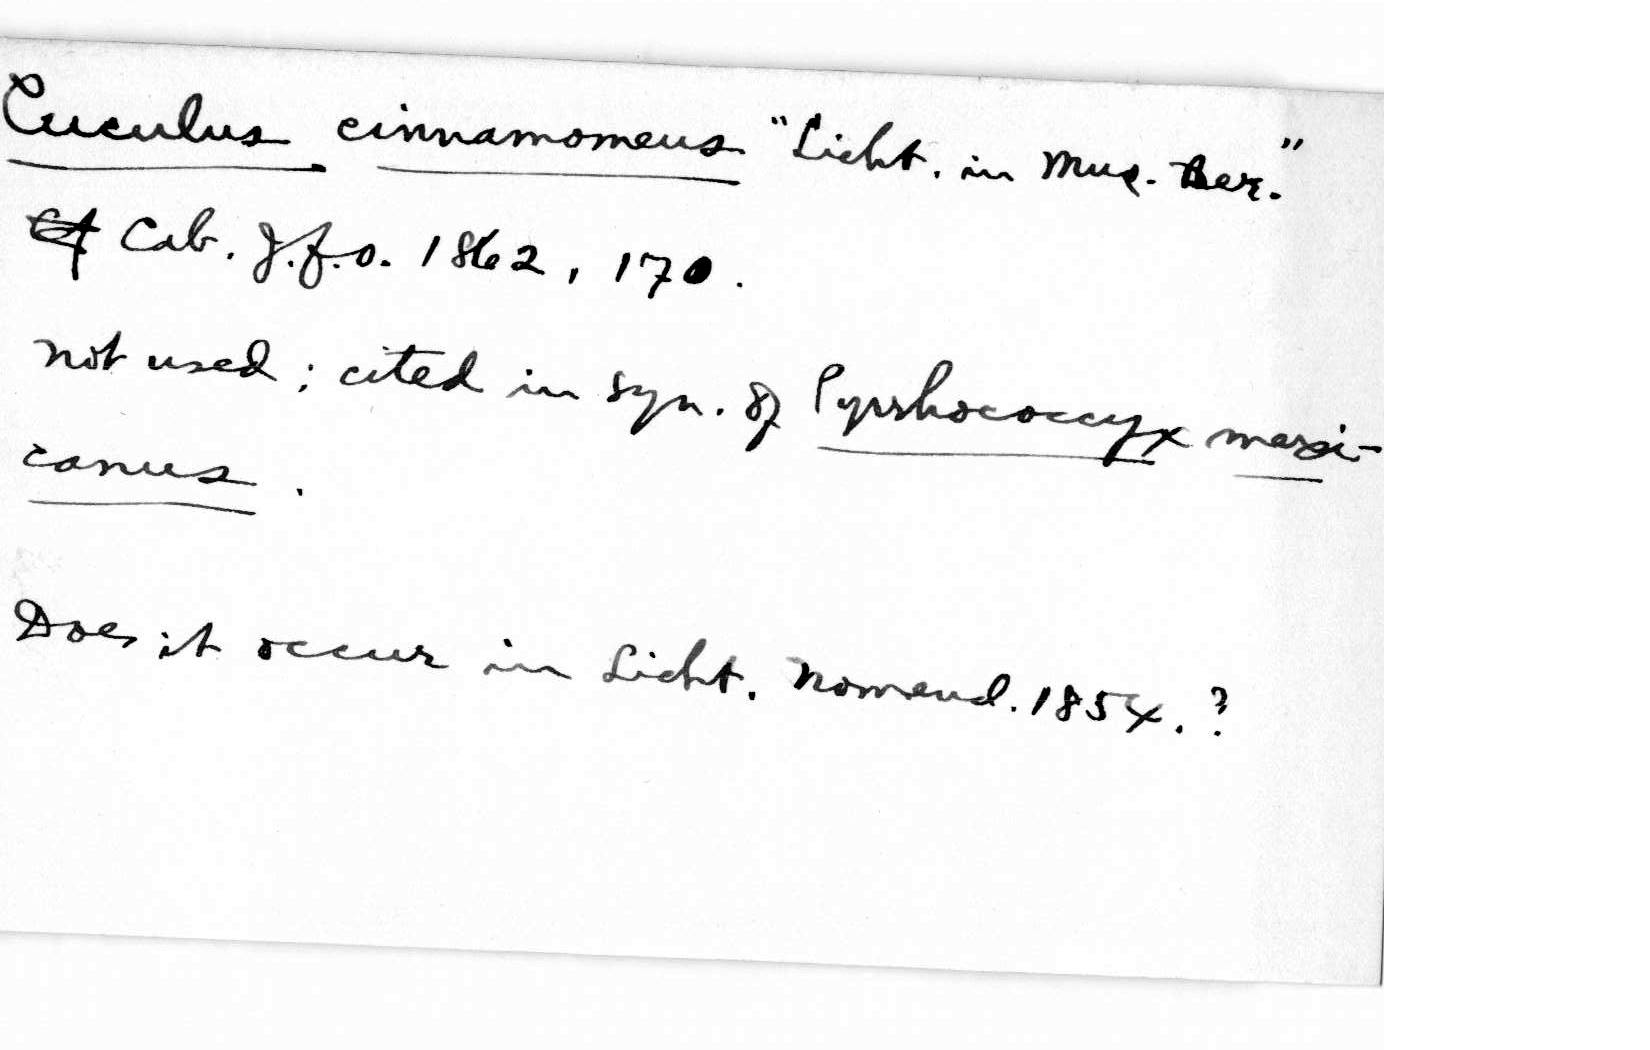 Cuculus cinnamomeus "Licht. in Mus. Ber."
Cab. J.f.O. 1862, 170.
not used; cited in syn. of Pyrrhococcyx mexi-
canus.
Does it occur in Licht. Nomencl. 1854.?